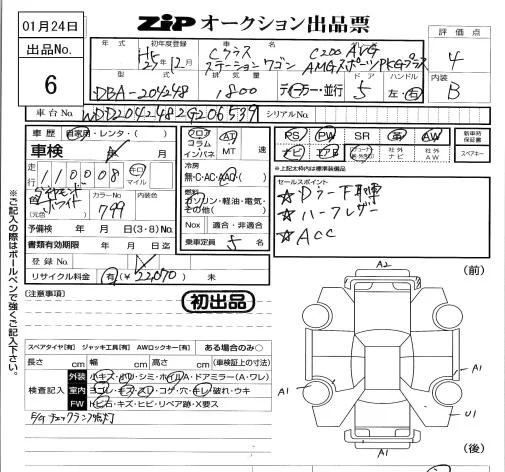 01月24日
ZiP オークション出品票
出品No.
6
年式
初年度登録
車名
グレード
評価点
H5
25 12月
Cクラス
ステーションワゴン
C200 AVG
AMGスポーツPKGプラス
4
型式
排気量
ドア
ハンドル
内装
DBA-204248
1800
ディーラー・並行
5
左・右
B
車台No.
WDD2042482G206539
シリアルNo.
車歴
自家用・レンタ・( )
フロア
コラム
インパネ
AT
MT
速
PS
PW
SR
革
AW
新車時
保証書
車検
年
月
ナビ
エアB
社外
ナビ
社外
AW
スペアキー
走行
110008
キロ
マイル
冷房
無・C・AC・AAC
*上記太枠内は標準装備品
色
ダイヤモンド
ホワイト
(元色)
カラーNo
799
内装色
燃料
ガソリン・軽油・電気・
その他( )
セールスポイント
☆Dラー下取車
☆ハーフレザー
☆ACC
予備検
年 月 日(3・8)No.
Nox
適合・非適合
書類有効期限
年 月 日迄
乗車定員
5 名
登録No.
リサイクル料金
有(¥22,070) 未
(注意事項)
初出品
※ご記入の際はボールペンで強くご記入下さい。
A2
(前)
A1
A1
U1
A1
(後)
スペアタイヤ[有] ジャッキ工具[有] AWロックキー[有] ある場合のみ○
長さ cm 幅 cm 高さ cm (車検証上の寸法)
検査記入
外装
小キズ・凹リ・シミ・ホイルA・ドアミラー(A・ワレ)
室内
ヨゴレ・キズ・スレ・コゲ・穴・キレ・破れ・ウキ
FW
トビ石・キズ・ヒビ・リペア跡・X要ス
E/Gチェックランプ点灯